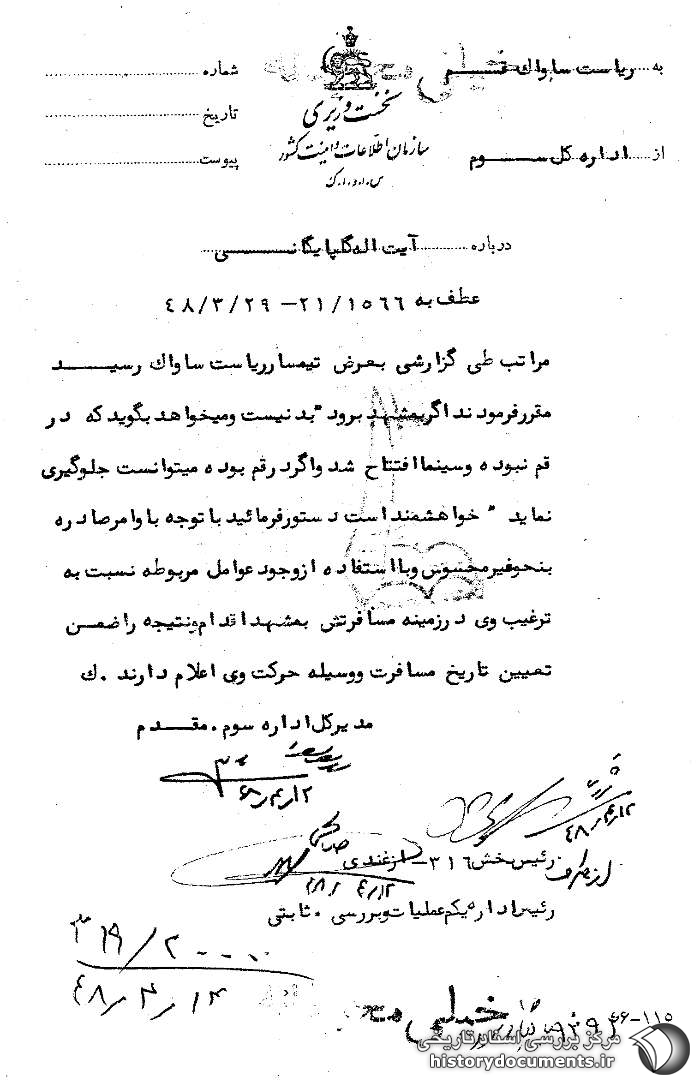 خیلی محرمانه
به ریاست ساواک قم
شماره
نخست وزیری
تاریخ
سازمان اطلاعات و امنیت کشور
از اداره کل سوم
پیوست
س.ا.و.ا.ک
درباره آیت اله گلپایگانی
عطف به ۲۱/۱۵۶۶ – ۴۸/۳/۲۹
مراتب طی گزارشی بعرض تیمسار ریاست ساواک رسید
مقرر فرمودند اگر بمشهد برود "بد نیست و میخواهد بگوید که در
قم نبوده و سینما افتتاح شد و اگر در قم بوده میتوانست جلوگیری
نماید " خواهشمند است دستور فرمائید با توجه باوامر صادره
بنحو غیر محسوس و با استفاده از وجود عوامل مربوطه نسبت به
ترغیب وی در زمینه مسافرتش بمشهد اقدام و نتیجه را ضمن
تعیین تاریخ مسافرت و وسیله حرکت وی اعلام دارند . ک
مدیر کل اداره سوم . مقدم
۴۸/۴/۱۲
۴۸/۴/۱۲
از طرف
رئیس بخش ۳۱۶ – ازغندی
۴۸/۴/۱۲
رئیس اداره یکم عملیات و بررسی . ثابتی
۴۸/۴/۱۴
خیلی محرمانه
۶۶-۱۱۵
مرکز بررسی اسناد تاریخی
historydocuments.ir